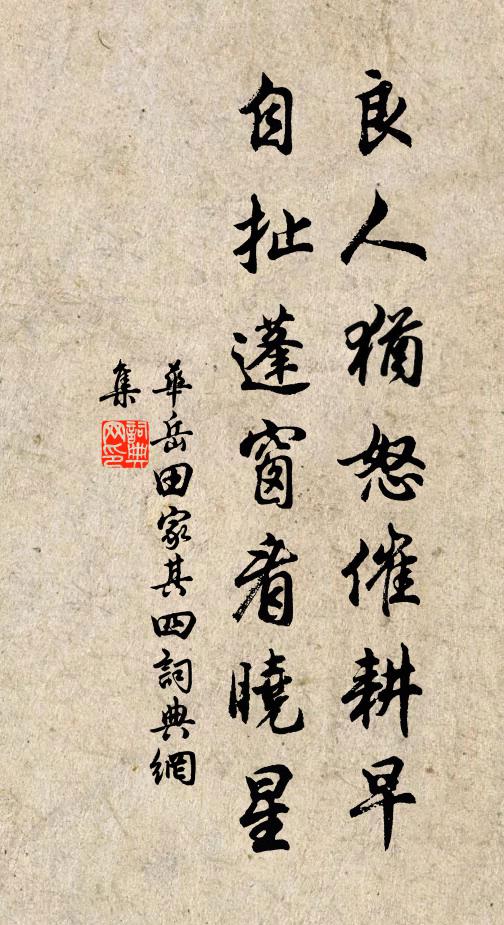 良人猶怒催耕早
自扯蓬窗看曉星
華岳田家其四詞典網
集
詞典
网印